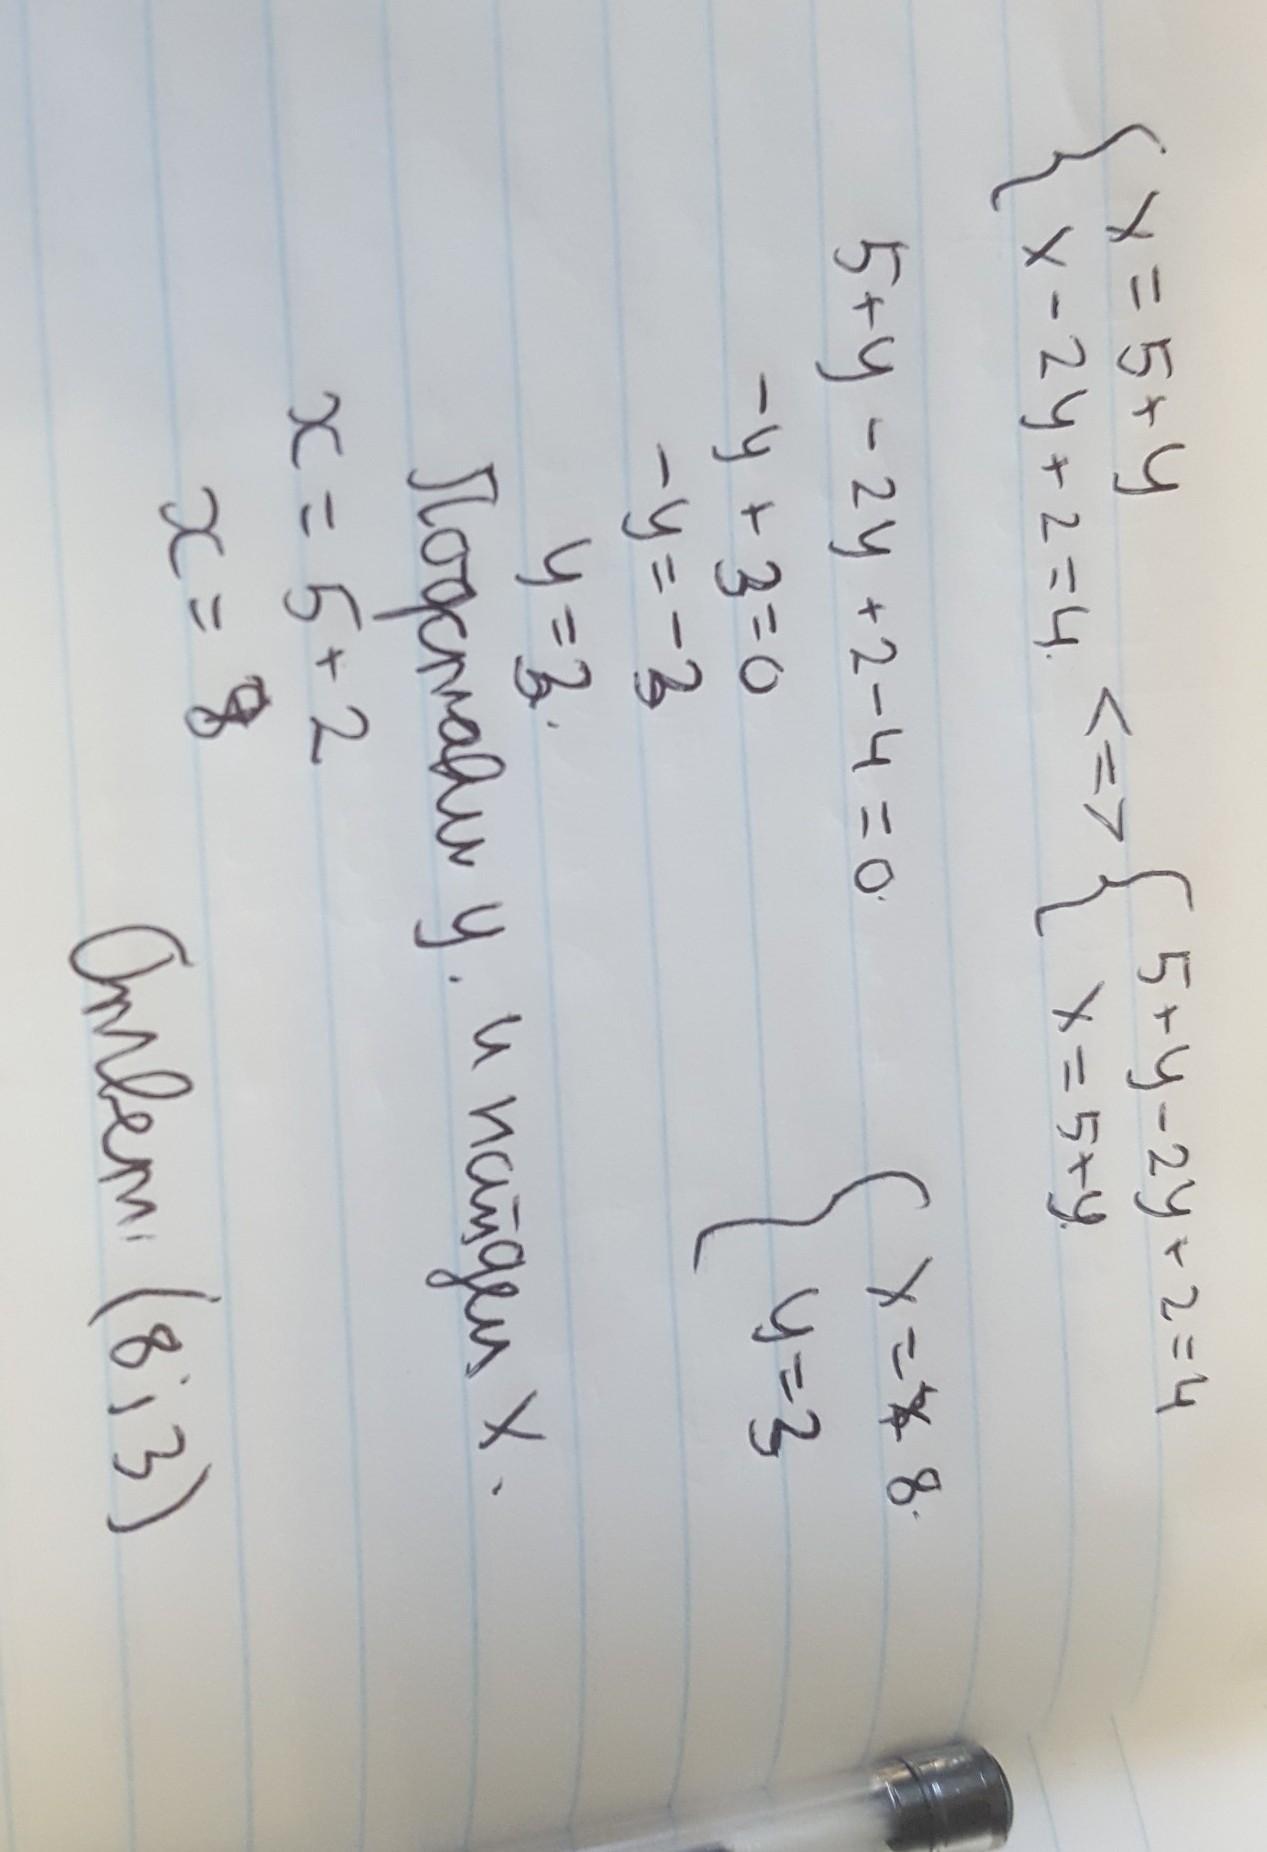 { x = 5 + y
{ x - 2y + 2 = 4. <=> { 5 + y - 2y + 2 = 4
{ x = 5 + y.
5 + y - 2y + 2 - 4 = 0.
-y + 3 = 0
-y = -3
y = 3.
{ x = 8.
{ y = 3
Подставим y. и найдем x.
x = 5 + 2
x = 8
Ответ: (8; 3)